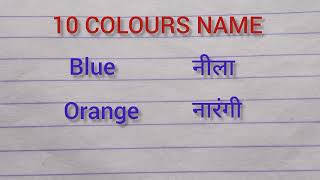 10 COLOURS NAME
Blue नीला
Orange नारंगी